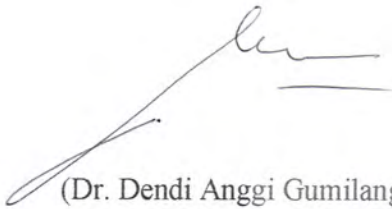 (Dr. Dendi Anggi Gumilang